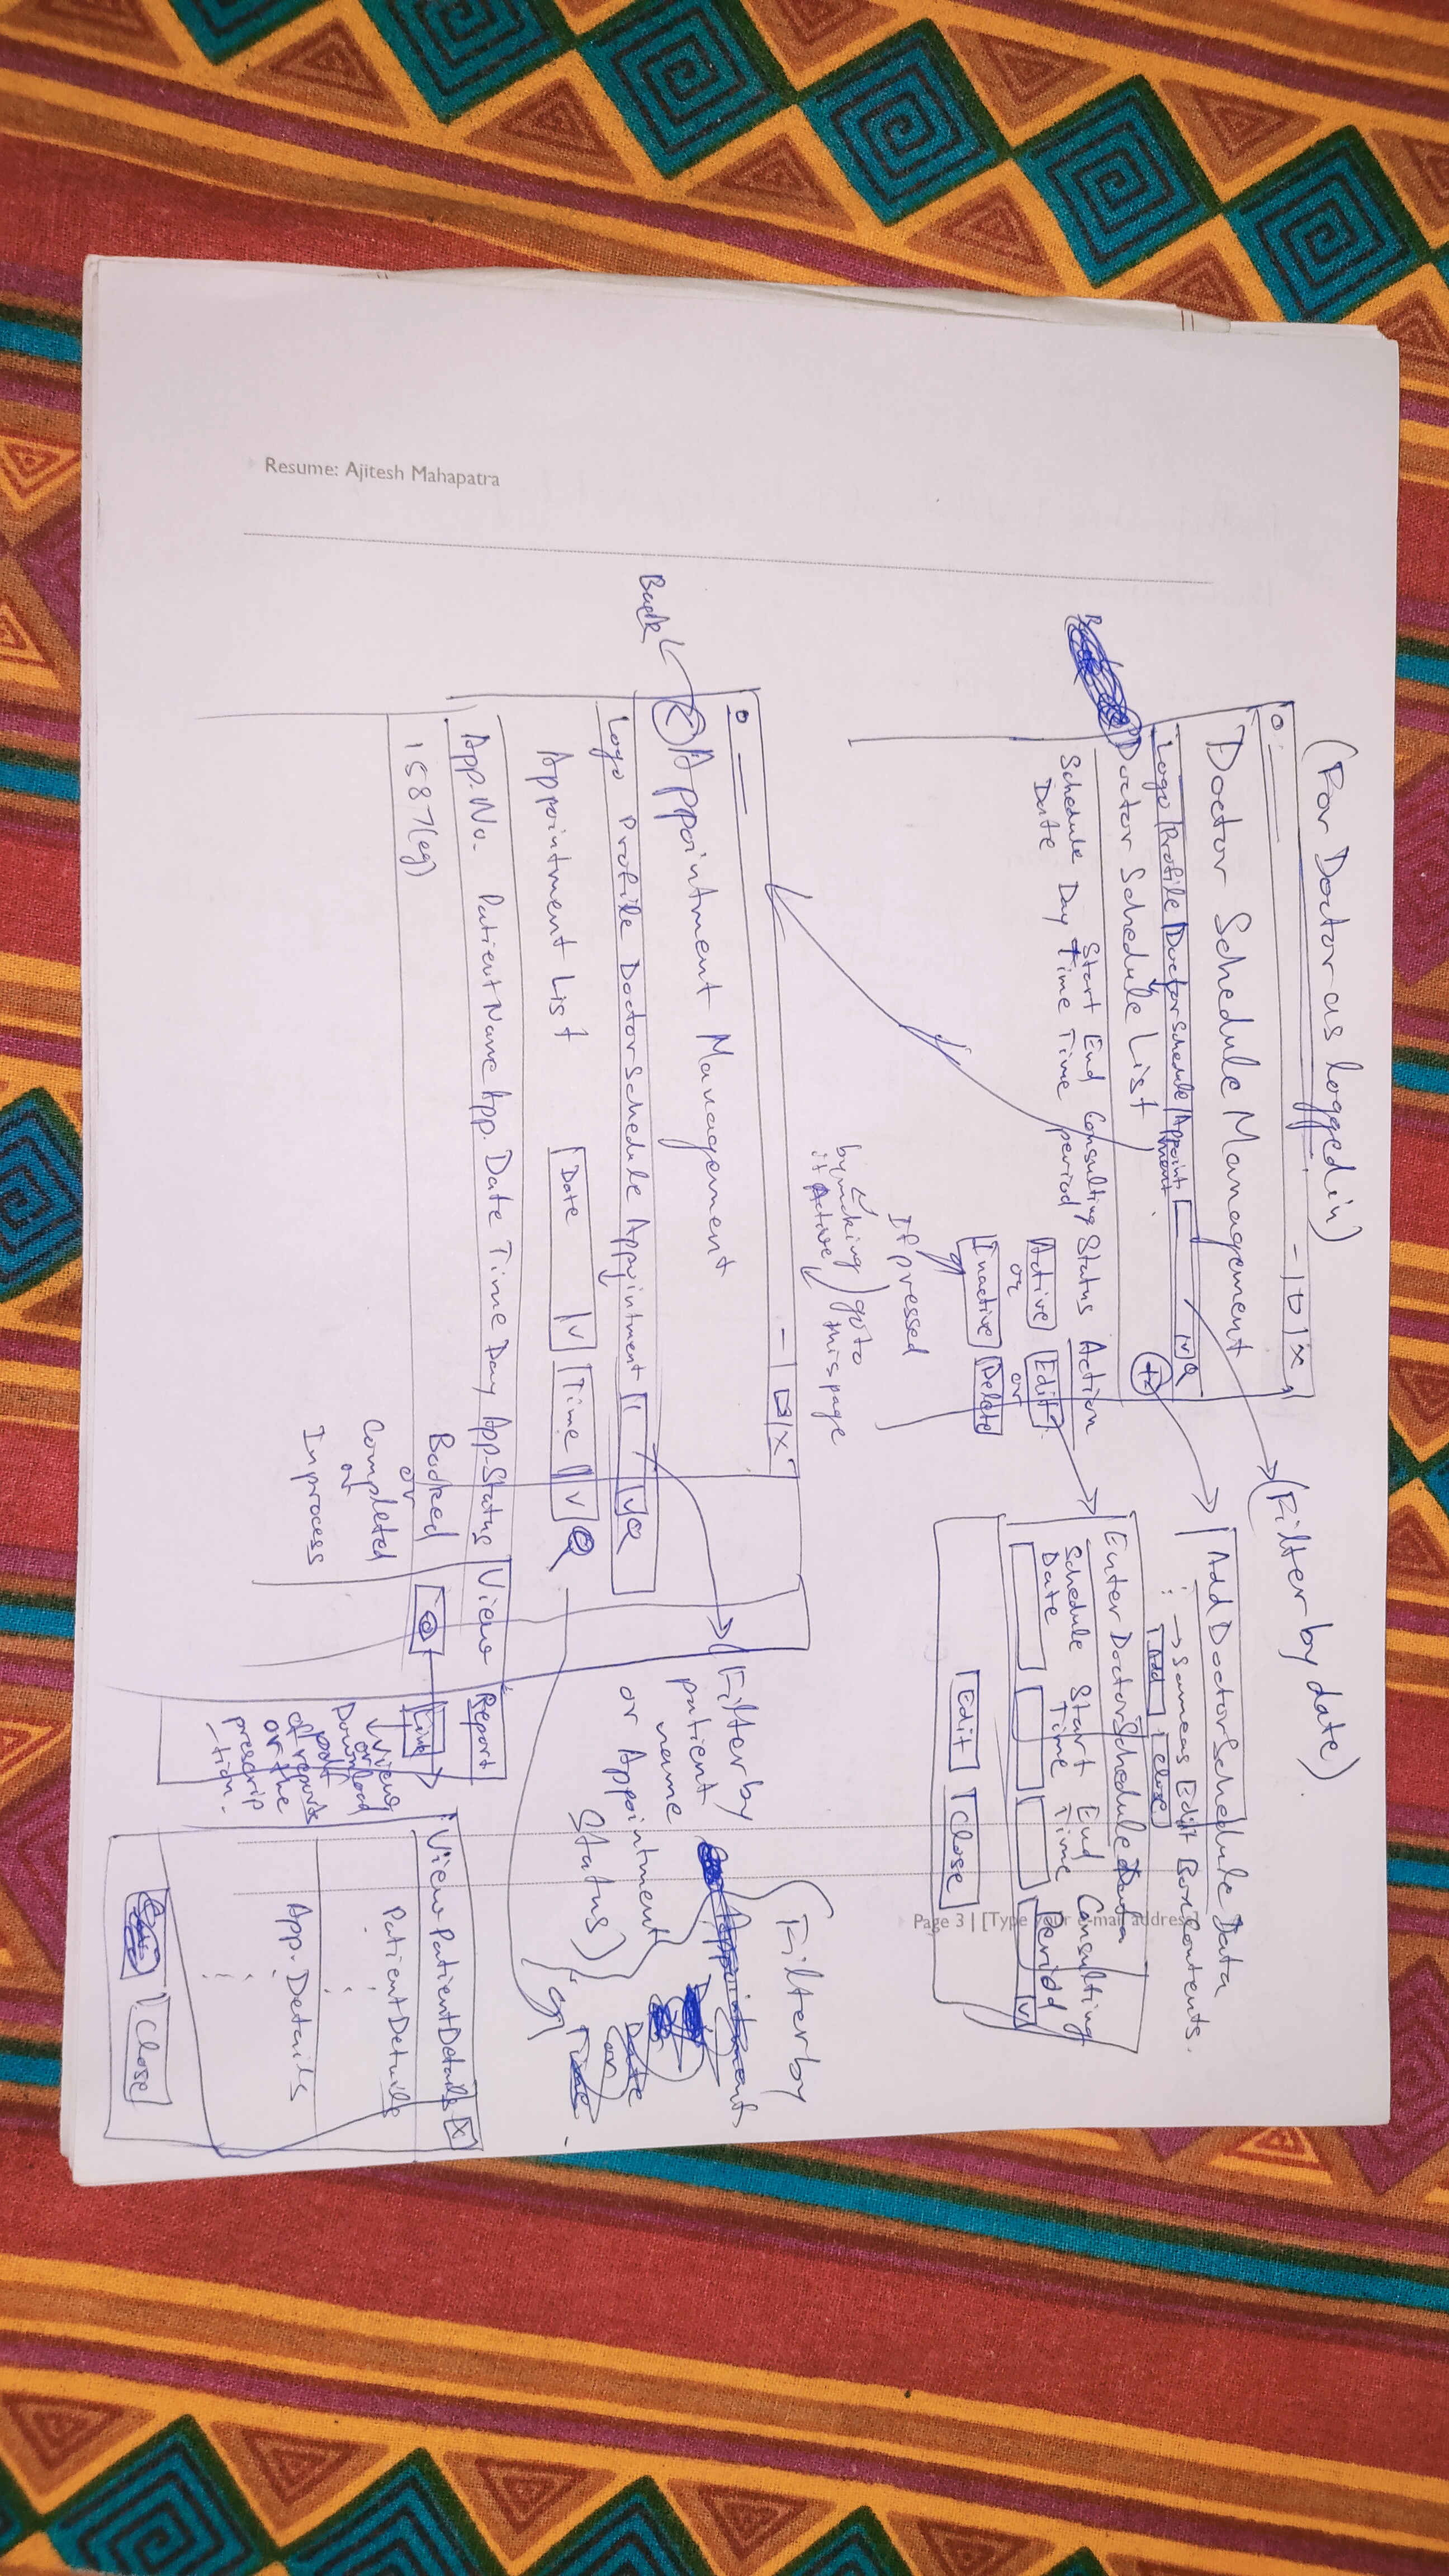 (For Doctor as logged in)
(Filter by date)
Doctor Schedule Management
Logo | Profile | Doctor Schedule | Appoint
ment
Doctor Schedule List
Schedule Date
Day
Start Time
End Time
Consulting period
Status
Action
Active
or
Inactive
Edit
or
Delete
Add Doctor Schedule Data
→ Same as Edit Box Contents.
Add
Close
Enter Doctor Schedule Data
Schedule Date
Start Time
End Time
Consulting Period
Edit
Close
If pressed
by making it Active
go to this page
Appointment Management
Back
Logo Profile Doctor Schedule Appointment
Appointment List
Date
Time
(Filter by
patient
name
or Appointment
Status)
Filter by
Appointment
Date
or
Time
App. No. Patient Name App. Date Time Day App. Status View Report
1587(eg)
Booked
or
Completed
or
Inprocess
Link
View
or
Download
pdf
of reports
or the
prescrip
-tion.
View Patient Details X
Patient Details
App. Details
Close
Page 3 | [Type your e-mail address]
Resume: Ajitesh Mahapatra